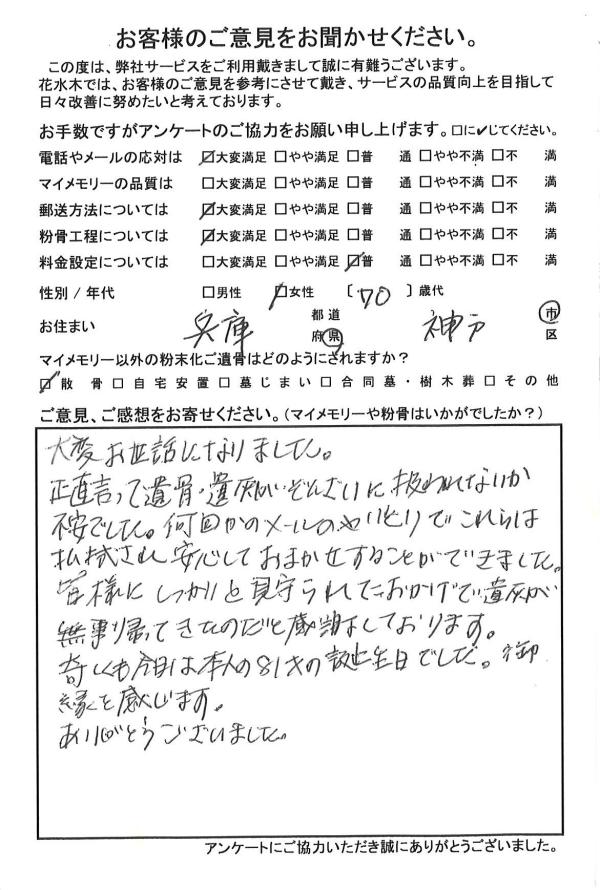 お客様のご意見をお聞かせください。
この度は、弊社サービスをご利用戴きまして誠に有難うございます。
花水木では、お客様のご意見を参考にさせて戴き、サービスの品質向上を目指して
日々改善に努めたいと考えております。
お手数ですがアンケートのご協力をお願い申し上げます。□に✔じてください。
電話やメールの応対は ☑大変満足 □やや満足 □普 通 □やや不満 □不 満
マイメモリーの品質は □大変満足 □やや満足 □普 通 □やや不満 □不 満
郵送方法については ☑大変満足 □やや満足 □普 通 □やや不満 □不 満
粉骨工程については ☑大変満足 □やや満足 □普 通 □やや不満 □不 満
料金設定については □大変満足 □やや満足 ☑普 通 □やや不満 □不 満
性別 / 年代 □男性 ☑女性 〔 70 〕歳代
お住まい 兵庫 都道府県 神戸 市区
マイメモリー以外の粉末化ご遺骨はどのようにされますか?
☑散 骨 □自宅安置 □墓じまい □合同墓・樹木葬 □その他
ご意見、ご感想をお寄せください。(マイメモリーや粉骨はいかがでしたか?)
大変お世話になりました。
正直言って遺骨・遺灰がぞんざいに扱われないか
不安でした。何回かのメールのやりとりでこれらは
払拭され安心しておまかせすることができました。
皆様にしっかりと見守られたおかげで遺灰が
無事帰ってきたのだと感謝しております。
奇しくも今日は本人の81才の誕生日でした。御
縁を感じます。
ありがとうございました。
アンケートにご協力いただき誠にありがとうございました。